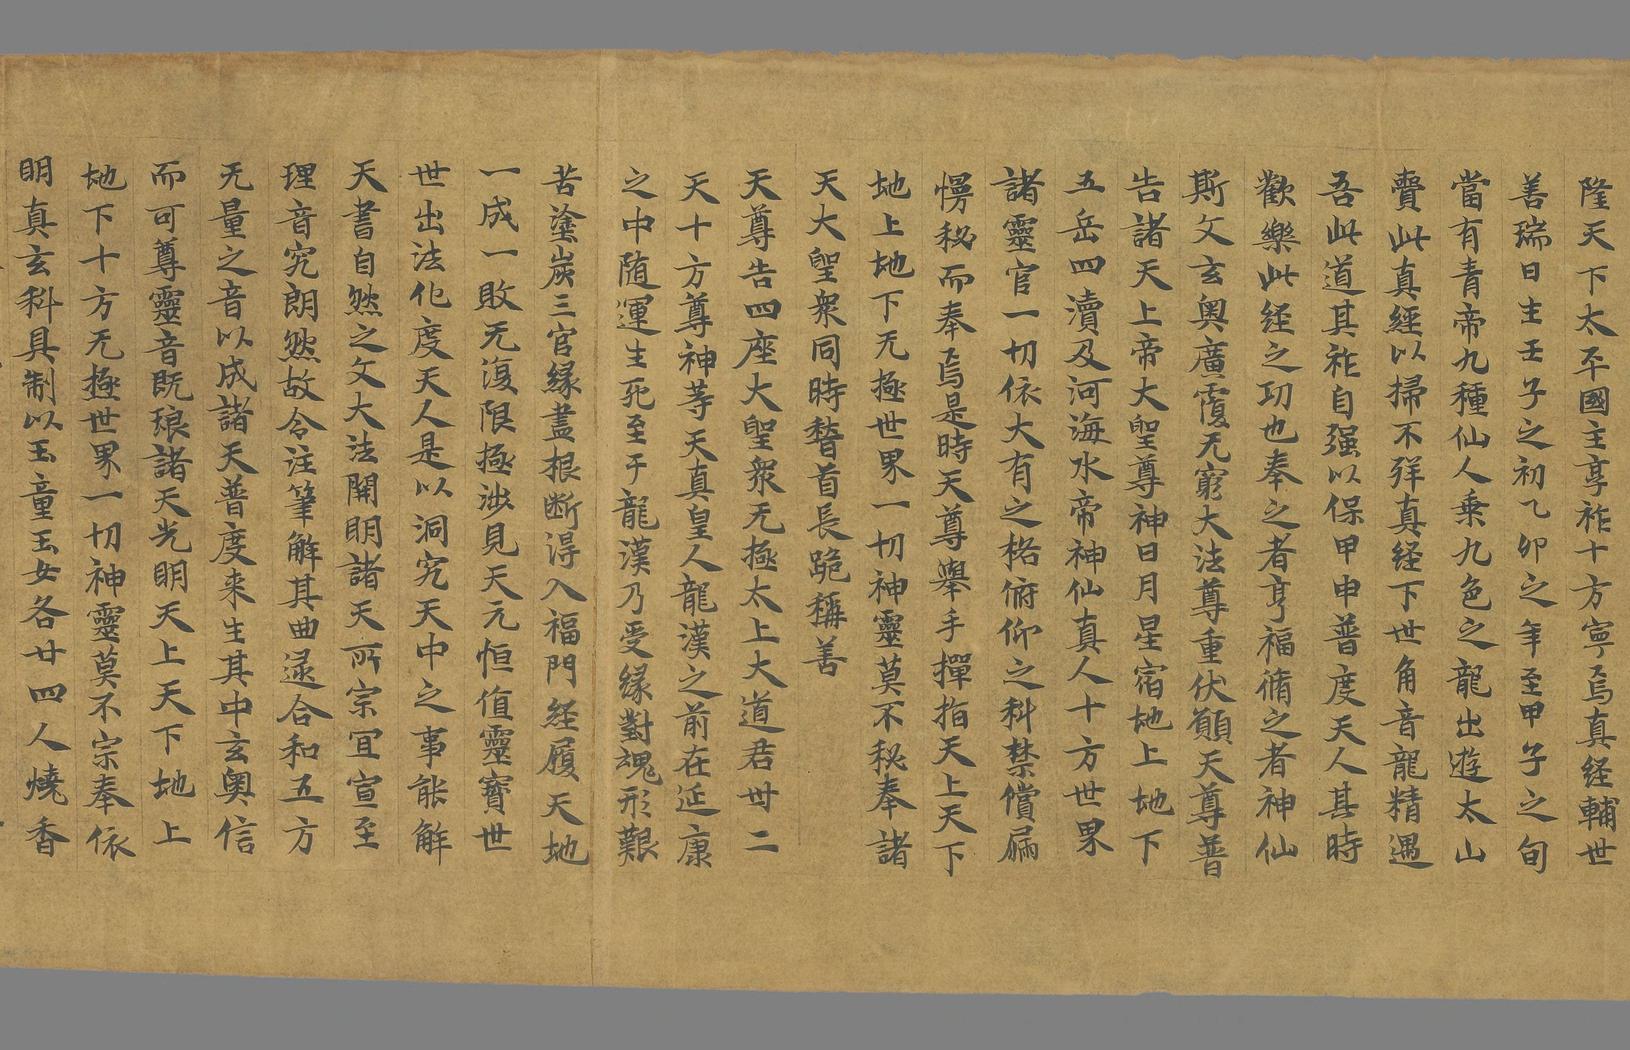 隆天下太平國主享祚十方寧焉真経輔世
善瑞日生壬子之初乙卯之年至甲子之旬
當有青帝九種仙人乗九色之龍出遊太山
賷此真經以掃不祥真経下世角音龍精遇
吾此道其祚自强以保甲申普度天人其時
歡樂此経之功也奉之者享福脩之者神仙
斯文玄奥廣覆无窮大法尊重伏願天尊普
告諸天上帝大聖尊神日月星宿地上地下
五岳四瀆及河海水帝神仙真人十方世界
諸靈官一切依大有之格俯仰之科禁償屚
慢秘而奉焉是時天尊舉手撣指天上天下
地上地下无極世界一切神靈莫不秘奉諸
天大聖衆同時稽首長跪稱善
天尊告四座大聖衆无極太上大道君卅二
天十方尊神等天真皇人龍漢之前在延康
之中随運生死至于龍漢乃受緣對魂形艱
苦塗炭三官緣盡根断得入福門経履天地
一成一敗无復限極涉見天元恒值靈寶世
世出法化度天人是以洞究天中之事能解
天書自然之文大法開明諸天所宗宜宣至
理音究朗然故令注筆解其曲逯合和五方
无量之音以成諸天普度来生其中玄奥信
而可尊靈音既琅諸天光明天上天下地上
地下十方无極世界一切神靈莫不宗奉依
明真玄科具制以玉童玉女各廿四人燒香